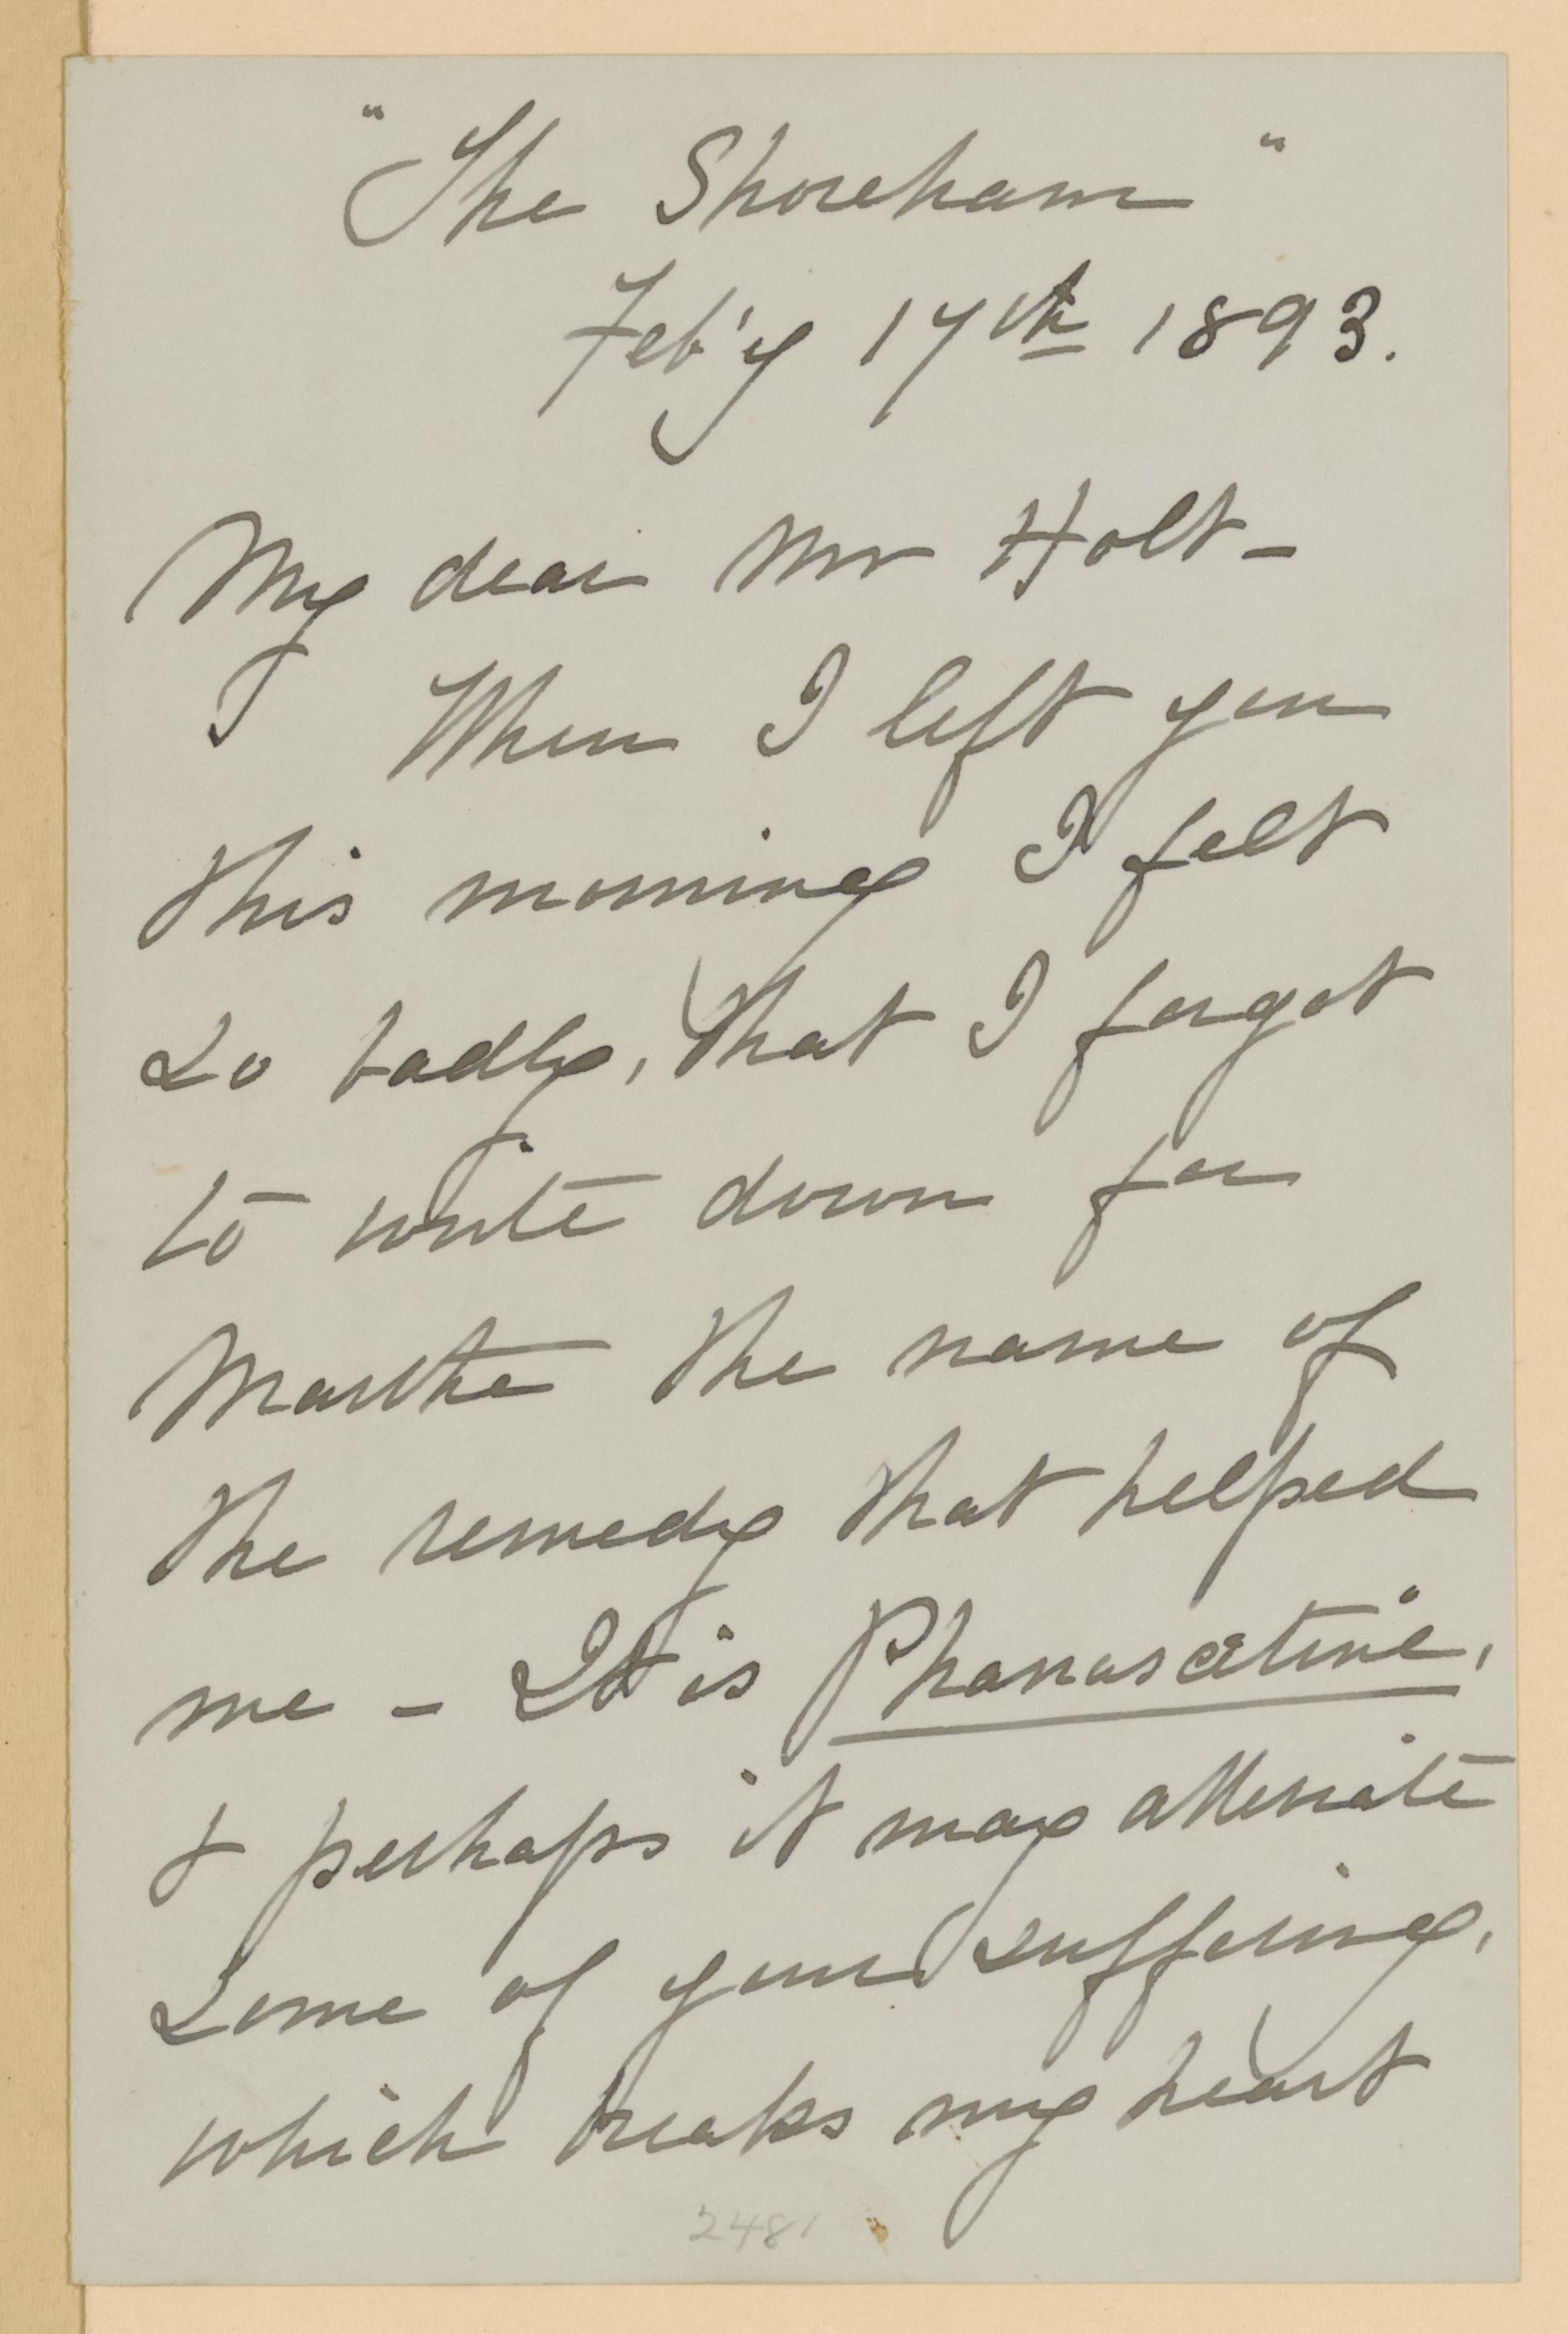 "The Shoreham"
Feb'y 17th 1893.
My dear Mr Holt-
When I left you
this morning I felt
so badly, that I forgot
to write down for
Martha the name of
the remedy that helped
me - It is Phanasætine,
& perhaps it may alleviate
some of your suffering,
which breaks my heart
2481